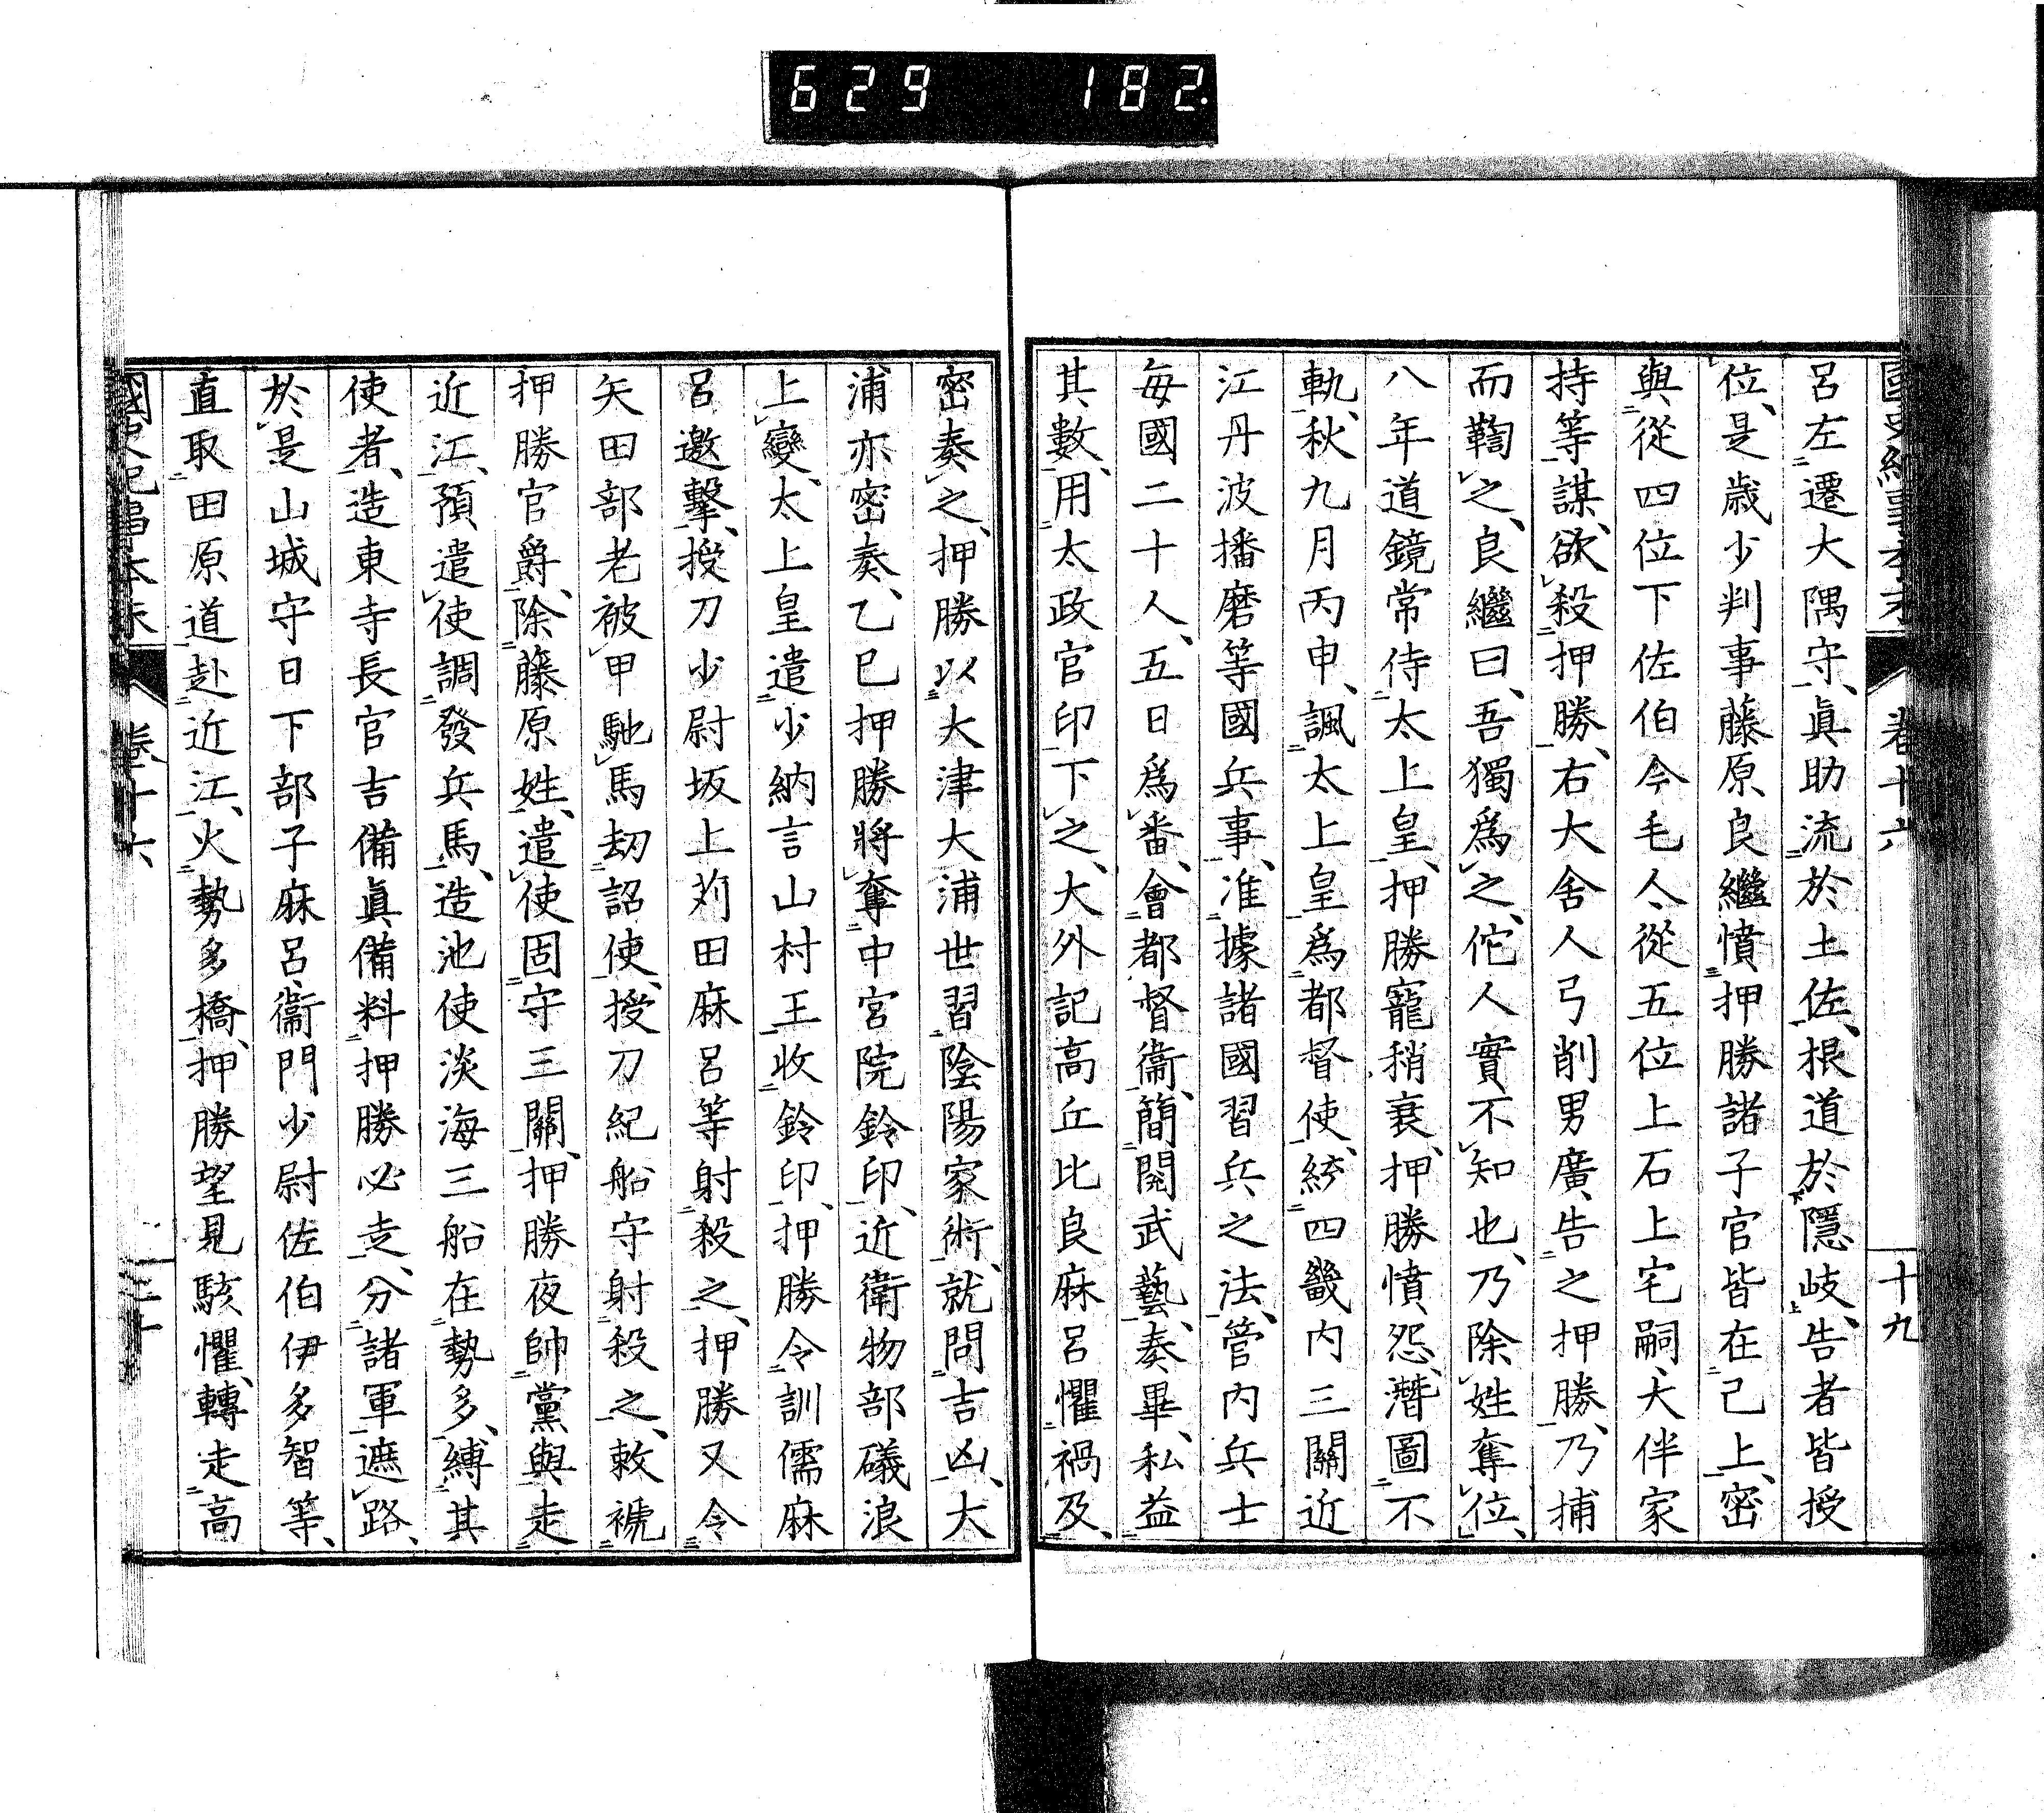 629 182
國史紀事本末 卷十六 十九
呂左遷大隅守、眞助流於土佐、根道於隱岐、告者皆授
位、是歲少判事藤原良繼憤押勝諸子官皆在己上、密
與從四位下佐伯今毛人從五位上石上宅嗣、大伴家
持等謀、欲殺押勝、右大舍人弓削男廣、告之押勝、乃捕
而鞫之、良繼曰、吾獨爲之、佗人實不知也、乃除姓奪位、
八年道鏡常侍太上皇、押勝寵稍衰、押勝憤怨、潛圖不
軌、秋九月丙申、諷太上皇爲都督使、統四畿内三關近
江丹波播磨等國兵事、准據諸國習兵之法、管内兵士
每國二十人、五日爲番、會都督衞、簡閱武藝、奏畢、私益
其數、用太政官印下之、大外記高丘比良麻呂懼禍及、
密奏之、押勝以大津大浦世習陰陽家術、就問吉凶、大
浦亦密奏、乙巳押勝將奪中宮院鈴印、近衛物部礒浪
上變、太上皇遣少納言山村王收鈴印、押勝令訓儒麻
呂邀擊、授刀少尉坂上苅田麻呂等射殺之、押勝又令
矢田部老被甲馳馬劫詔使、授刀紀船守射殺之、敕褫
押勝官爵、除藤原姓、遣使固守三關、押勝夜帥黨與走
近江、預遣使調發兵馬、造池使淡海三船在勢多、縛其
使者、造東寺長官吉備眞備料押勝必走、分諸軍遮路、
於是山城守日下部子麻呂、衞門少尉佐伯伊多智等、
直取田原道赴近江、火勢多橋、押勝望見駭懼、轉走高
國史紀事本末 卷十六 二十